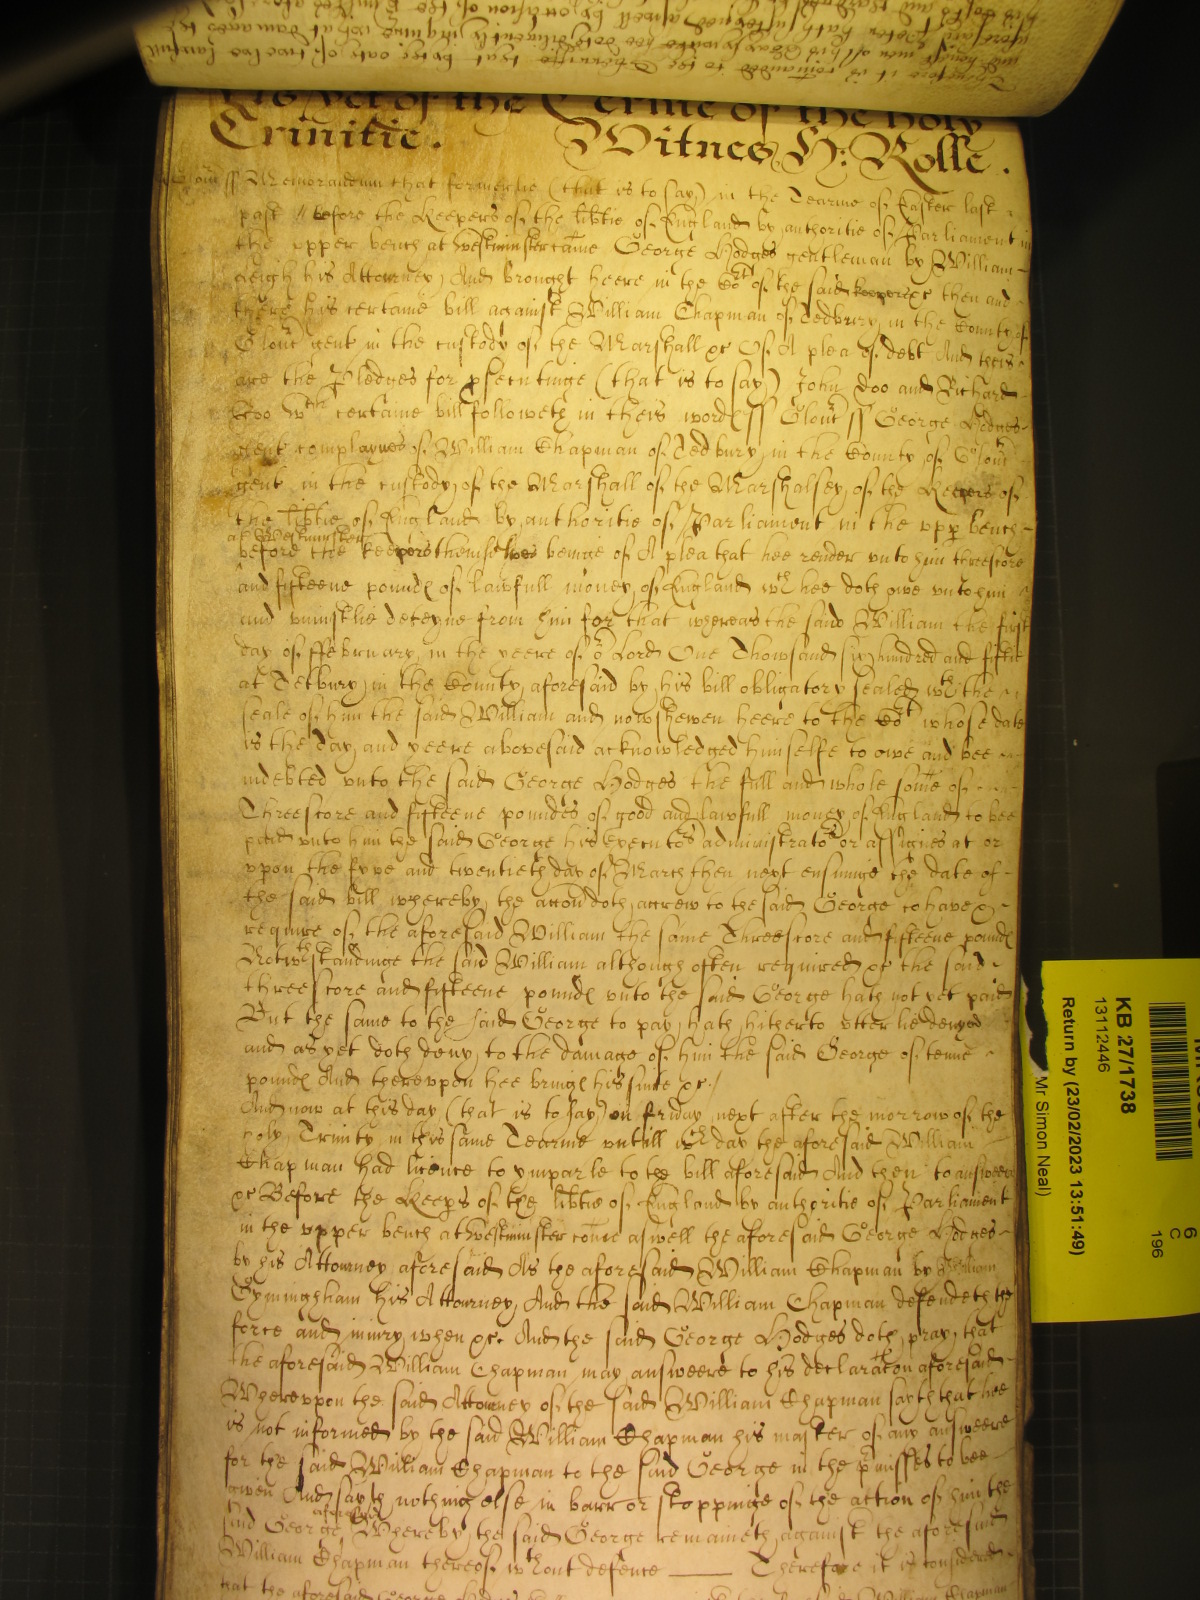 As yet of the Terme of the holy
Trinitie. Witnes H: Rolle.
Glouc ss Memorandum that formerlie (that is to say) in the Tearme of Easter last
past before the Keepers of the lib'tie of England by authoritie of Parliament in
the upper bench at Westminster came George Hodges gentleman by William
leigh his Attorney, And brought heere in the Co'rt of the said keepers xc then and
there his certaine bill against William Chapman of Tedbury in the County of
Glouc' gent in the custody of the Marshall xc Of A plea of debt And theis
are the Pledges for p'secutinge (that is to say) John Doo and Richard
Roo W'ch certaine bill followeth in theis words ss Glouc' ss George Hodges
gent complaynes of William Chapman of Tedbury in the County of Glouc'
gent in the custody of the Marshall of the Marshalsey of the Keepers of
the lib'tie of England by authoritie of Parliament in the upp' bench
at Westminster
before the keepers themselves beinge of A plea that hee render unto him threescore
and fifteene pounds of lawfull money of England w'ch hee doth owe unto him
and uniustlie deteyne from him for that whereas the said William the first
day of ffebruary in the yeere of o'r Lord One Thowsand six hundred and fiftie
at Tetbury in the County aforesaid by his bill obligatory sealed w'th the
seale of him the said William and now shewen heere to the Co'rt whose date
is the day and yeere abovesaid acknowledged himselfe to owe and bee
indebted unto the said George Hodges the full and whole some of
Threescore and fifteene poundes of good and lawfull money of England to bee
paid unto him the said George his executo'rs administrato'rs or assignes at or
upon the fyve and twentieth day of March then next ensuinge the date of
the said bill whereby the accon doth accrew to the said George to have &
require of the aforesaid William the same Threescore and fifteene pounds
Notw'thstandinge the said William although often required xc the said
threescore and fifteene pounds unto the said George hath not yet paid
But the same to the said George to pay hath hitherto utterlie denyed
and as yet doth deny, to the damage of him the said George of tenne
pounds And thereupon hee brings his suite xc./
And now at this day (that is to say) on friday next after the morrow of the
holy Trinity in this same Tearme untill w'ch day the aforesaid William
Chapman had licence to ymparle to the bill aforesaid And then to answeer
xc Before the Keep's of the lib'tie of England by authoritie of Parliament
in the upper bench at Westminster come aswell the aforesaid George Hodges
by his Attourney aforesaid As the aforesaid William Chapman by William
Gyminghham his Attourney, And the said William Chapman defendeth the
force and iniury when xc. And the said George Hodges doth pray, that
the aforesaid William Chapman may answeere to his declaracon aforesaid
Whereupon the said Attourney of the said William Chapman sayth that hee
is not informed by the said William Chapman his master of any answeere
for the said William Chapman to the said George in the p'misses to bee
given And sayth nothing else in barr or stoppinge of the action of him the
aforesaid
said George, Whereby the said George remaineth against the aforesaid
William Chapman thereof w'thout defence Therefore it is considered
that the aforesaid George
KB 27/1738
13112446
Return by (23/02/2023 13:51:49)
Mr Simon Neal)
6
C
196